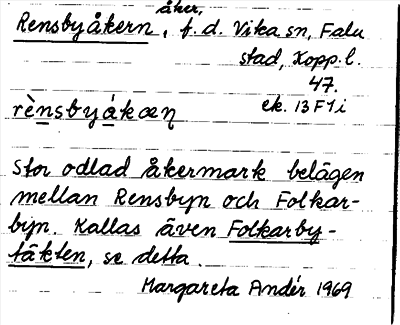 åker,
Rensbyåkern, f.d. Vika sn, Falu
stad, Kopp.l.
47.
rènsbyákæn̥ ek. 13 F 1 i
Stor odlad åkermark belägen
mellan Rensbyn och Folkar-
byn. Kallas även Folkarby-
täkten, se detta.
Margareta Andér 1969